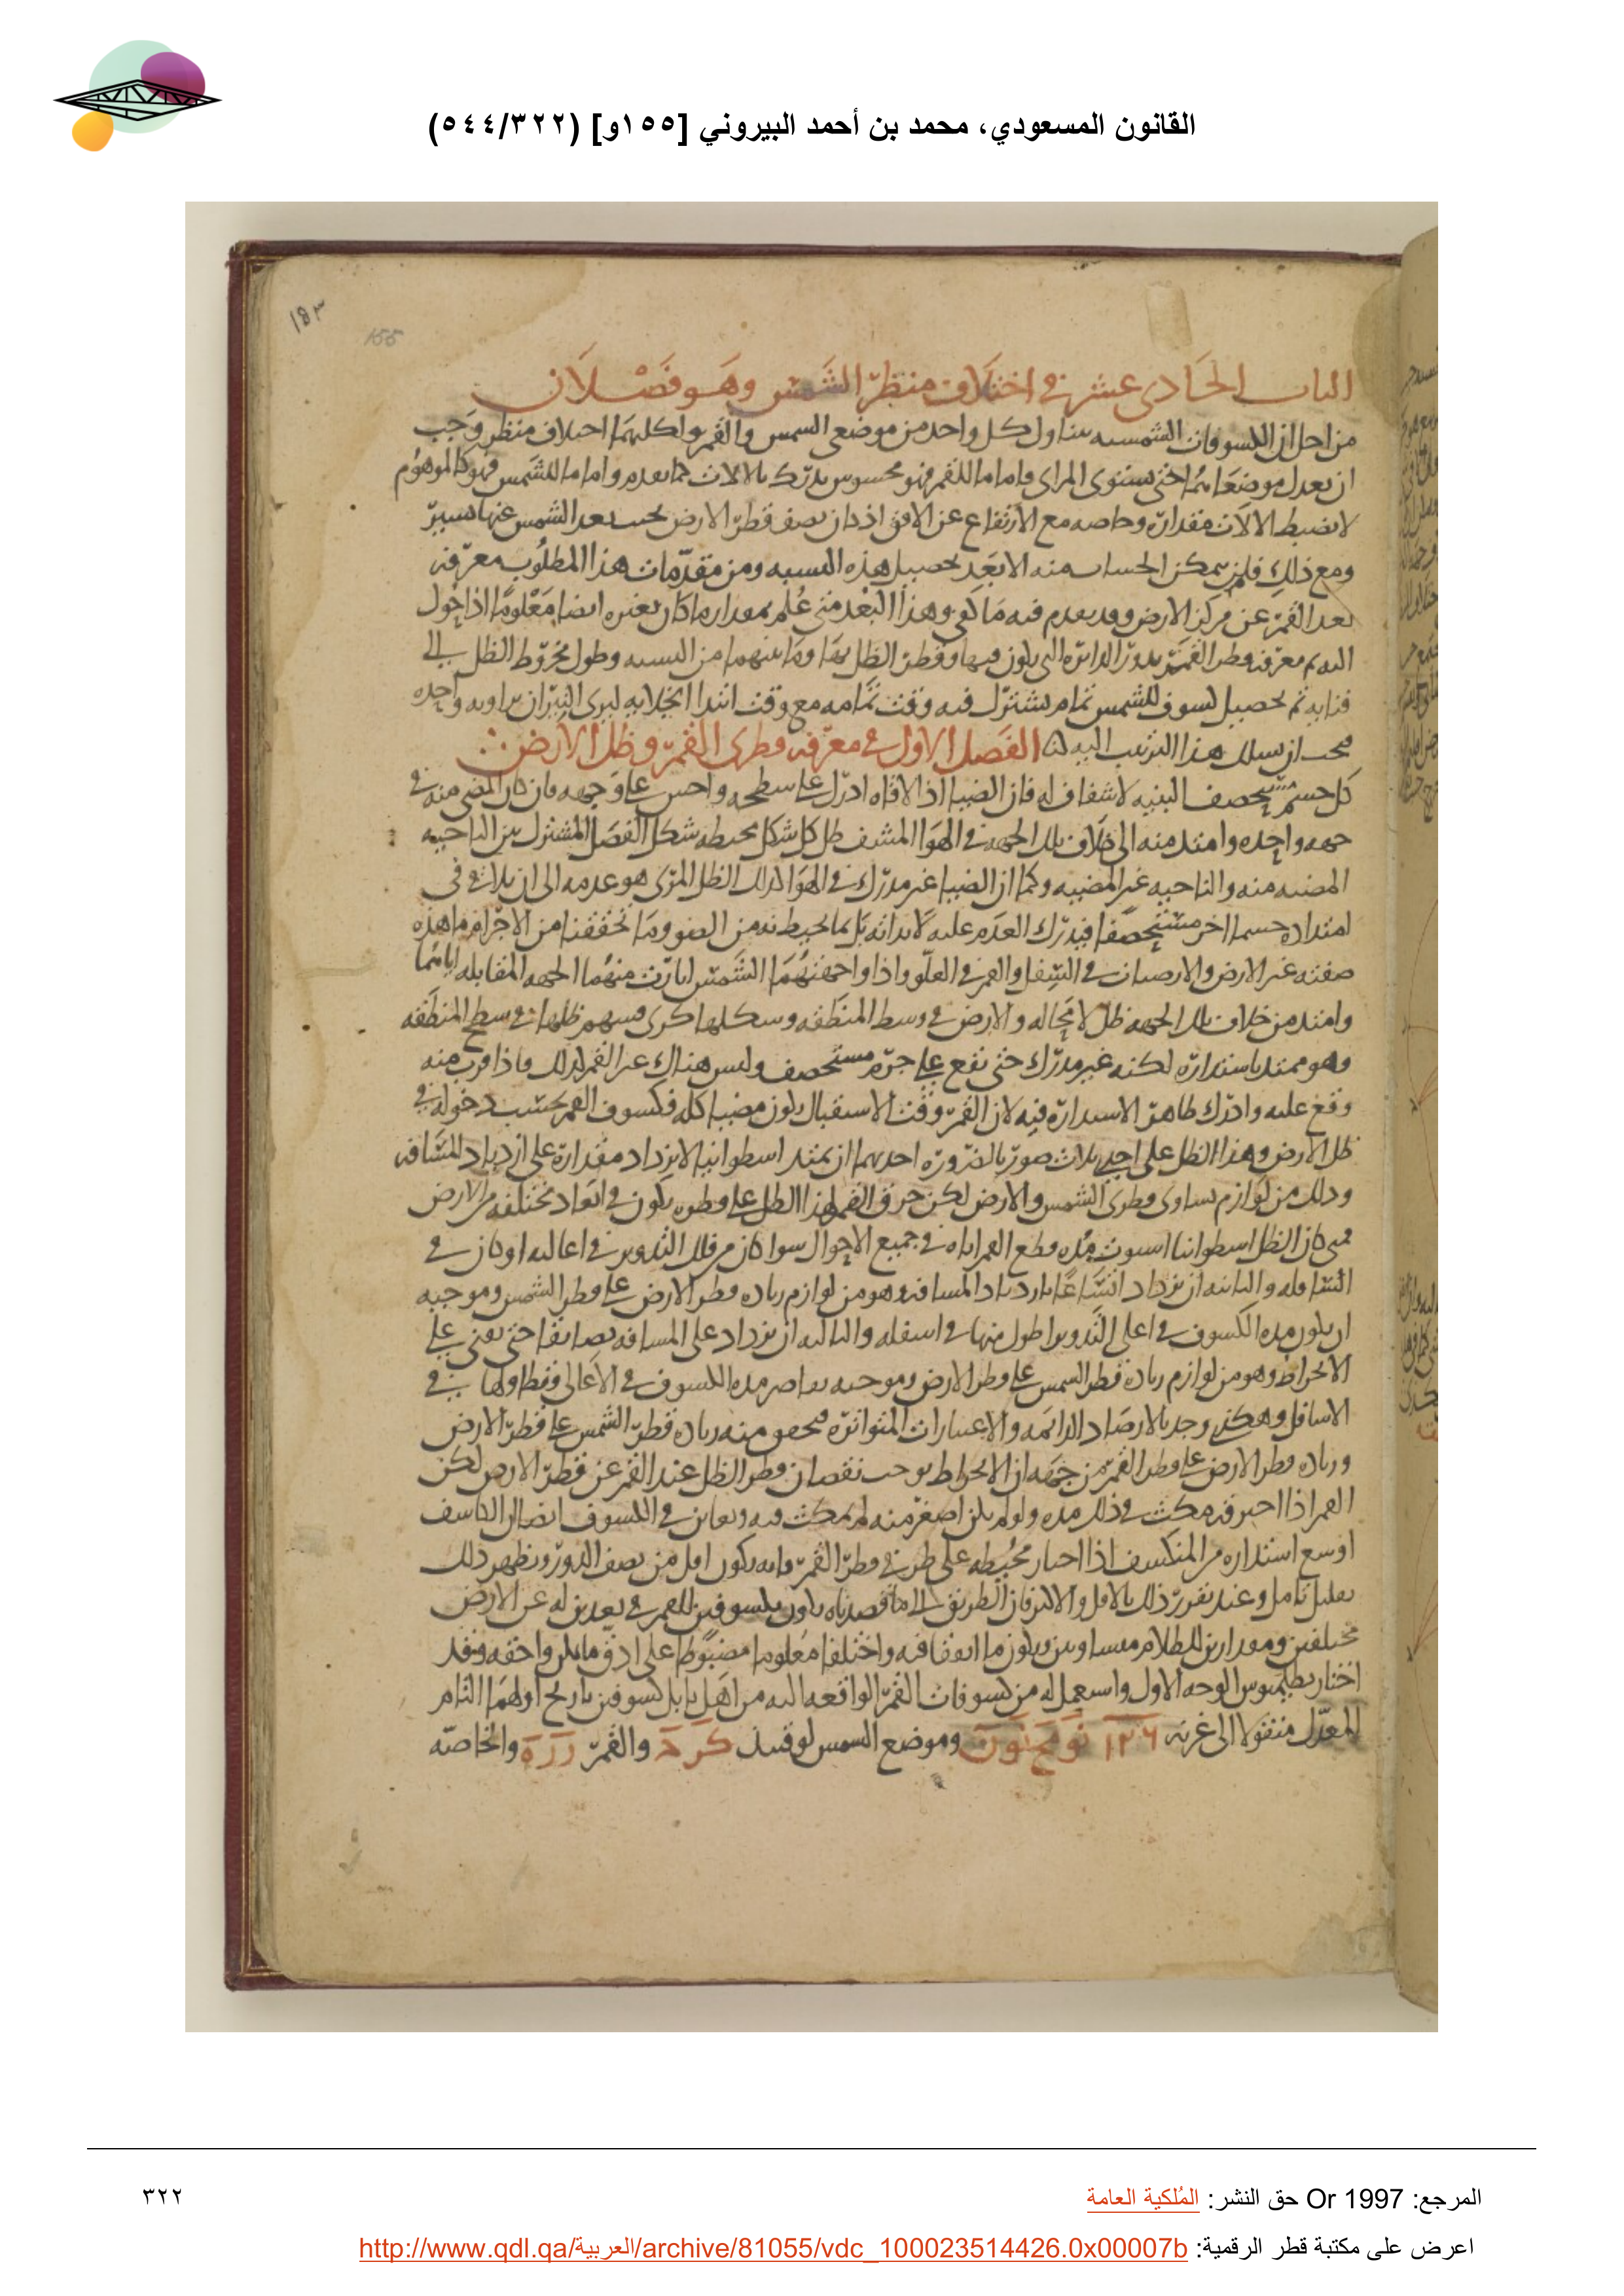 القانون المسعودي، محمد بن أحمد البيروني [١٥٥و] (٥٤٤/٣٢٢)
١٥٣
155
الباب الحادى عشر فى اختلاف منظر الشمس وهو فصلان
من اجل ان الكسوفات الشمسيه تتناول كل واحد من موضعى الشمس والقمر ولكليهما اختلاف منظر وجب
ان يعدل موضعاهما حتى يستوى المراى فاما ما للقمر فهو محسوس يدرك بالالات كما تقدم واما ما للشمس فهو كالموهوم
لا تضبط الالات مقداره وخاصه مع الارتفاع عن الافق اذ كان نصف قطر الارض بحسب بعد الشمس عنها يسير
ومع ذلك فلن يمكن الحساب منه الا بعد تحصيل هذه النسبه ومن مقدمات هذا المطلوب معرفه
بعد القمر عن مركز الارض وقد تقدم فيه ما كفى وهذا البعد متى علم بمقدار ما كان بغيره ايضا معلوما اذا حول
اليه ثم معرفه قطر القمر بدور الدائره التى يكون فيها وقطر الظل بها وما بينهما من النسبه وطول مخروط الظل الى
فنايه ثم تحصيل كسوف للشمس تام يشترك فيه وقت تمامه مع وقت ابتدا انجلايه ليرى النيران بزاويه واحده
فيجب ان نسلك هذا الترتيب اليه الفصل الاول فى معرفه قطرى القمر وظل الارض
كل جسم مستحصف البنيه لا شفاف له فان الضيا اذا لاقاه ادرك على سطحه واحس على وجهه فان كان المضى منه فى
جهه واحده وامتد منه الى خلاف تلك الجهه فى الهوا المشف ظل كل شكل محيطه شكل الفصل المشترك بين الناحيه
المضيه منه والناحيه غير المضيه وكما ان الضيا غير مدرك فى الهوا كذلك الظل الذى هو عدمه الى ان يلاقى فى
امتداده جسما اخر مستحصفا فيدرك العدم عليه لا بذاته بل بما يحيط به من الضو وما تحققنا من الاجرام ما هذه
صفته غير الارض والارضيات فى السفل والقمر فى العلو واذا واجهتهما الشمس انارت منهما الجهه المقابله اياهما
وامتد من خلاف تلك الجهه ظل لا محاله والارض فى وسط المنطقه وشكلها كرى فسهم ظلها فى سطح المنطقه
وهو ممتد باستداره لكنه غير مدرك حتى يقع على جرم مستحصف وليس هناك غير القمر لذلك فاذا قرب منه
وقع عليه وادرك ظاهر الاستداره فيه لان القمر وقت الاستقبال يكون مضيا كله فكسوف القمر بحسب دخوله فى
ظل الارض وهذا الظل على احدى ثلاث صور بالضروره احديهما ان يمتد اسطوانيا لا يزداد مقداره على ازدياد المسافه
وذلك من لوازم تساوى قطرى الشمس والارض لكن خرق القمر لهذا الظل على قطره يكون فى ابعاد مختلفه من الارض
فمتى كان الظل اسطوانيا استوت مده قطع القمر اياه فى جميع الاحوال سوا كان من فلك التدوير فى اعاليه او كان فى
اسافله والثانيه ان يزداد اتساعا بازدياد المسافه وهو من لوازم زياده قطر الارض على قطر الشمس وموجبه
ان يكون مده الكسوف فى اعلى التدوير اطول منها فى اسفله والثالثه ان يزداد على المسافه تضايقا حتى يفنى على
الانخراط وهو من لوازم زياده قطر الشمس على قطر الارض وموجبه تقاصر مده الكسوف فى الاعالى وتطاولها فى
الاسافل وهكذى وجد بالارصاد الدائمه والاعتبارات المتواتره فتحقق منه زياده قطر الشمس على قطر الارض
وزياده قطر الارض على قطر القمر من جهه ان الانخراط يوجب نقصان قطر الظل عند القمر عن قطر الارض لكن
القمر اذا احترقه مكث فى ذلك مده ولو لم يكن اصغر منه لم يمكث فيه ويعاين فى الكسوف ايضا ان الكاسف
اوسع استداره من المنكسف اذا اجتاز محيطه على طرفى قطر القمر فانه يكون اقل من نصف الدور ويظهر ذلك
بقليل تامل وعند تقرر ذلك بالاقل والاكثر فان الطريق الى ما قصدناه يكون بكسوفين للقمر فى بعدين له عن الارض
مختلفين ومقدارين للظلام متساويين ويكون ما اتفقا فيه واختلفا معلوما مضبوطا على ادق ما يمكن واحقه وقد
اختار بطلميوس الوجه الاول واستعمل له من كسوفات القمر الواقعه اليه من اهل بابل كسوفين تاريخ اولهما التام
المعدل منقولا الى غزنه وموضع الشمس لوقتيذ والقمر والخاصه
المرجع: Or 1997 حق النشر: المُلكية العامة
٣٢٢
اعرض على مكتبة قطر الرقمية: http://www.qdl.qa/العربية/archive/81055/vdc_100023514426.0x00007b